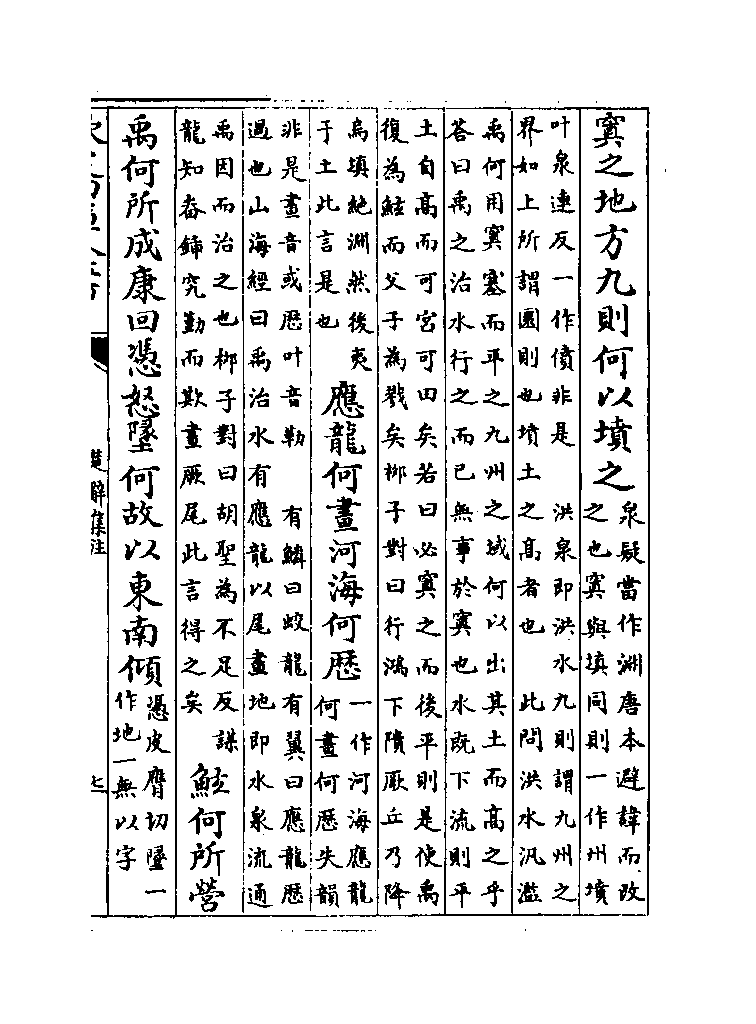 窴之地方九則何以墳之
泉疑當作淵唐本避諱而改
之也窴與填同則一作州墳
叶泉連反一作僨非是 洪泉即洪水九則謂九州之
界如上所謂圜則也墳土之髙者也 此問洪水汎濫
禹何用窴塞而平之九州之域何以出其土而髙之乎
答曰禹之治水行之而已無事於窴也水既下流則平
土自髙而可宫可田矣若曰必窴之而後平則是使禹
復為鮌而父子為戮矣栁子對曰行鴻下隤厥丘乃降
烏填絶淵然後夷
于土此言是也
應龍何畫河海何歴
一作河海應龍
何畫何歴失韻
非是畫音或歴叶音勒 有鱗曰蛟龍有翼曰應龍歴
過也山海經曰禹治水有應龍以尾畫地即水泉流通
禹因而治之也栁子對曰胡聖為不足反謀
龍知畚鍤究勤而欺畫厥尾此言得之矣
鮌何所營
禹何所成康回憑怒墬何故以東南傾
憑皮膺切墬一
作地一無以字
楚辭集注
七